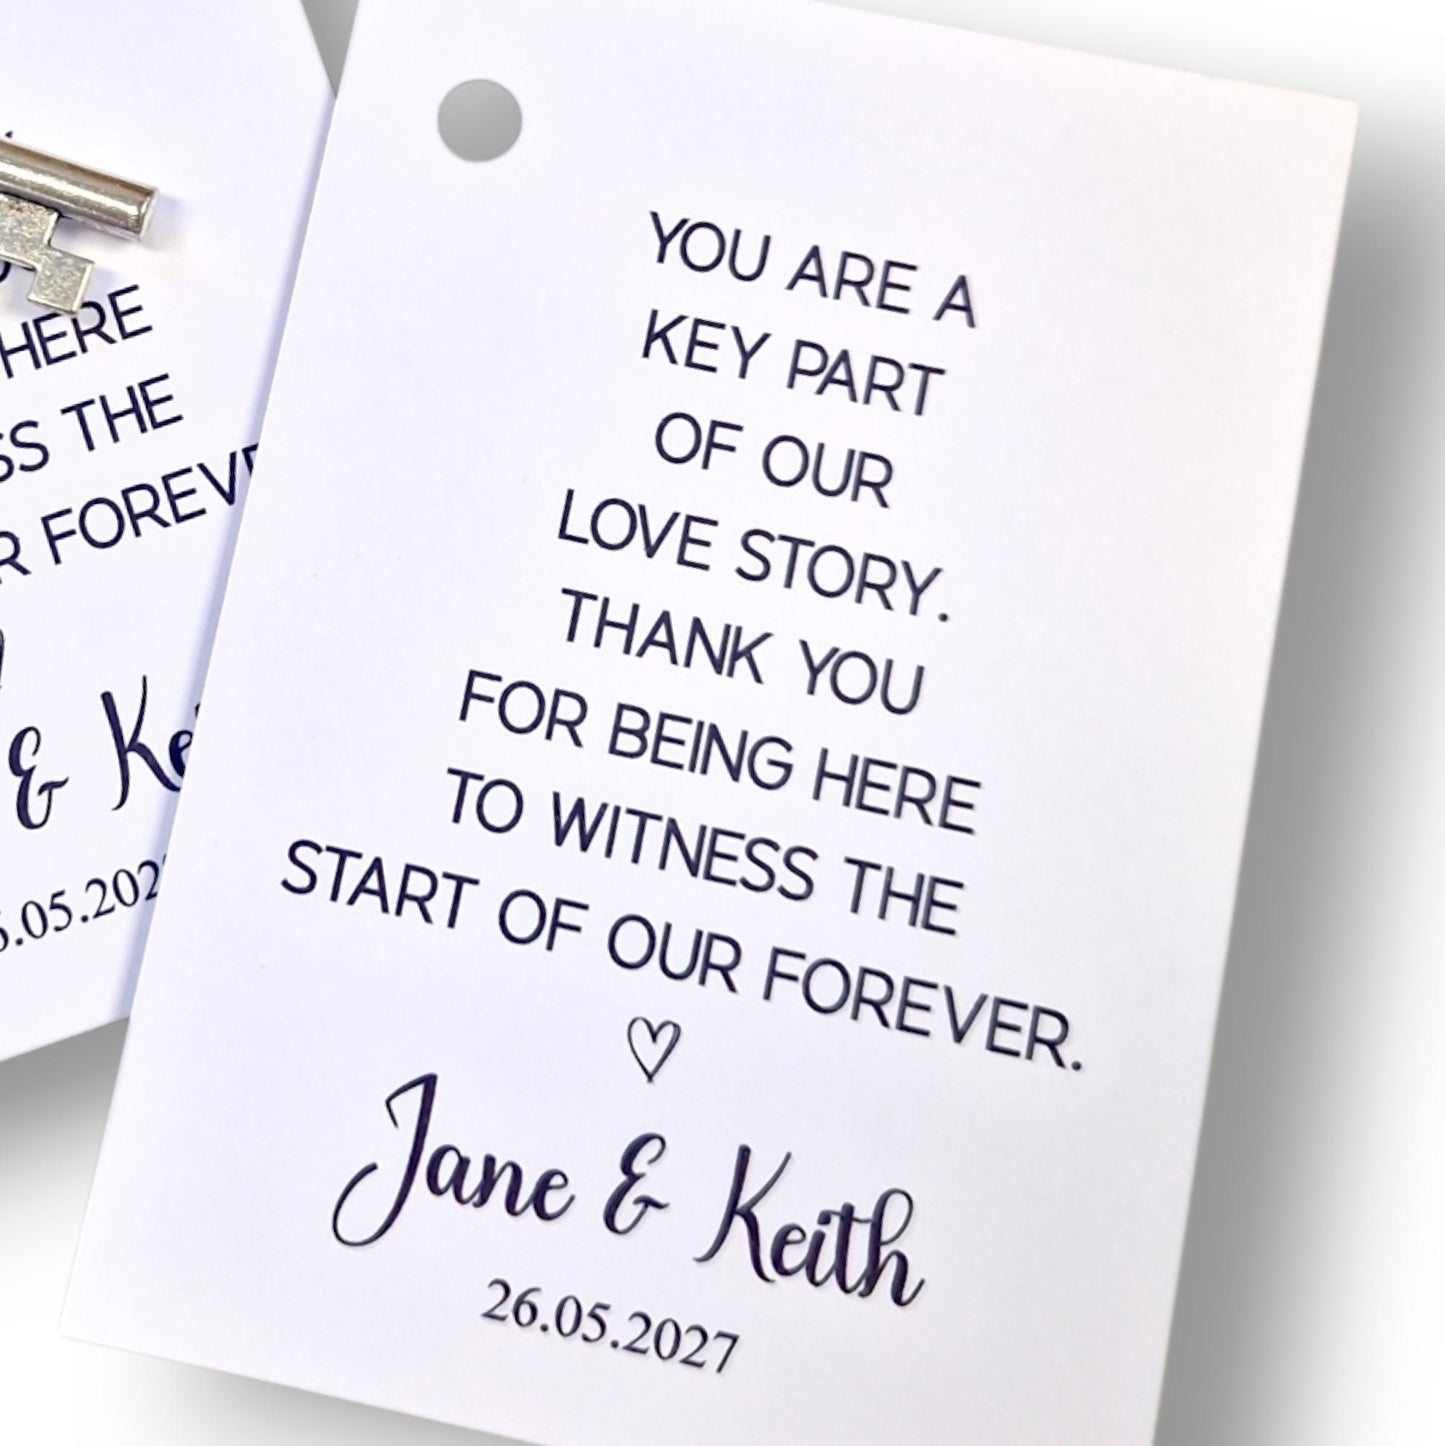 YOU ARE A
KEY PART
OF OUR
LOVE STORY.
THANK YOU
FOR BEING HERE
TO WITNESS THE
START OF OUR FOREVER.
Jane & Keith
26.05.2027
HERE
THE
FOREVE
&